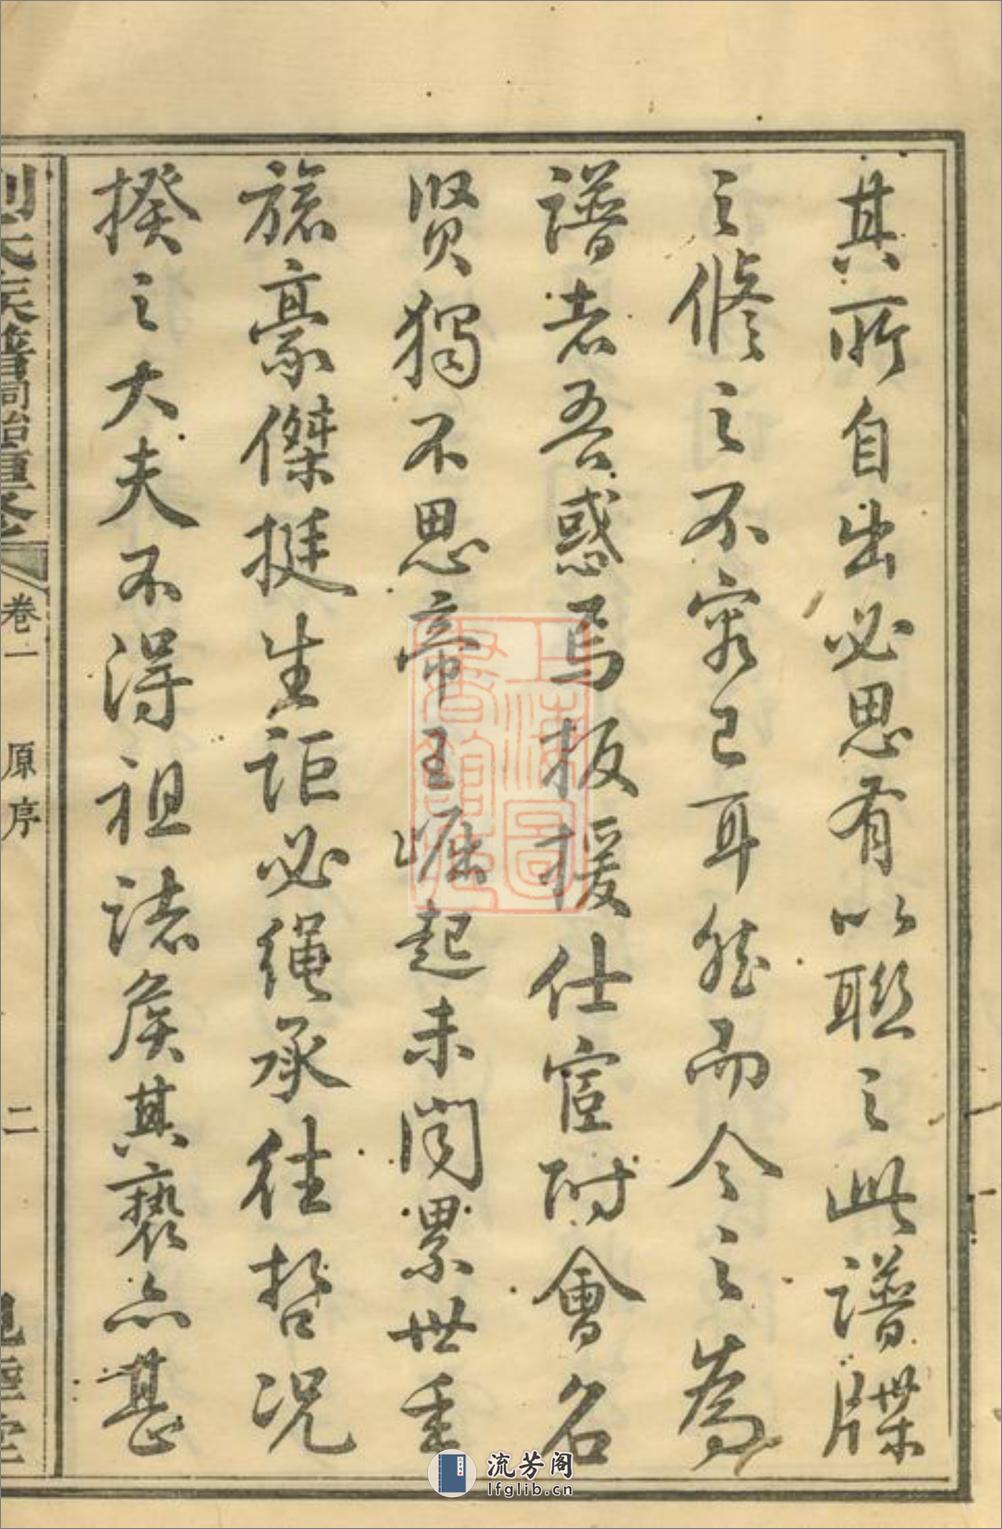 其所自出必思有以聯之此譜牒
之修之不容已耳然而今之為
譜者吾惑焉板援仕宦附會名
賢獨不思帝王崛起未聞累世重
旒豪傑挺生詎必繩承往哲況
揆之大夫不得祖諸侯其褻亦甚
氏族譜同治重修
卷一
原序
二
上海圖書館藏
流芳阁
lfglib.cn